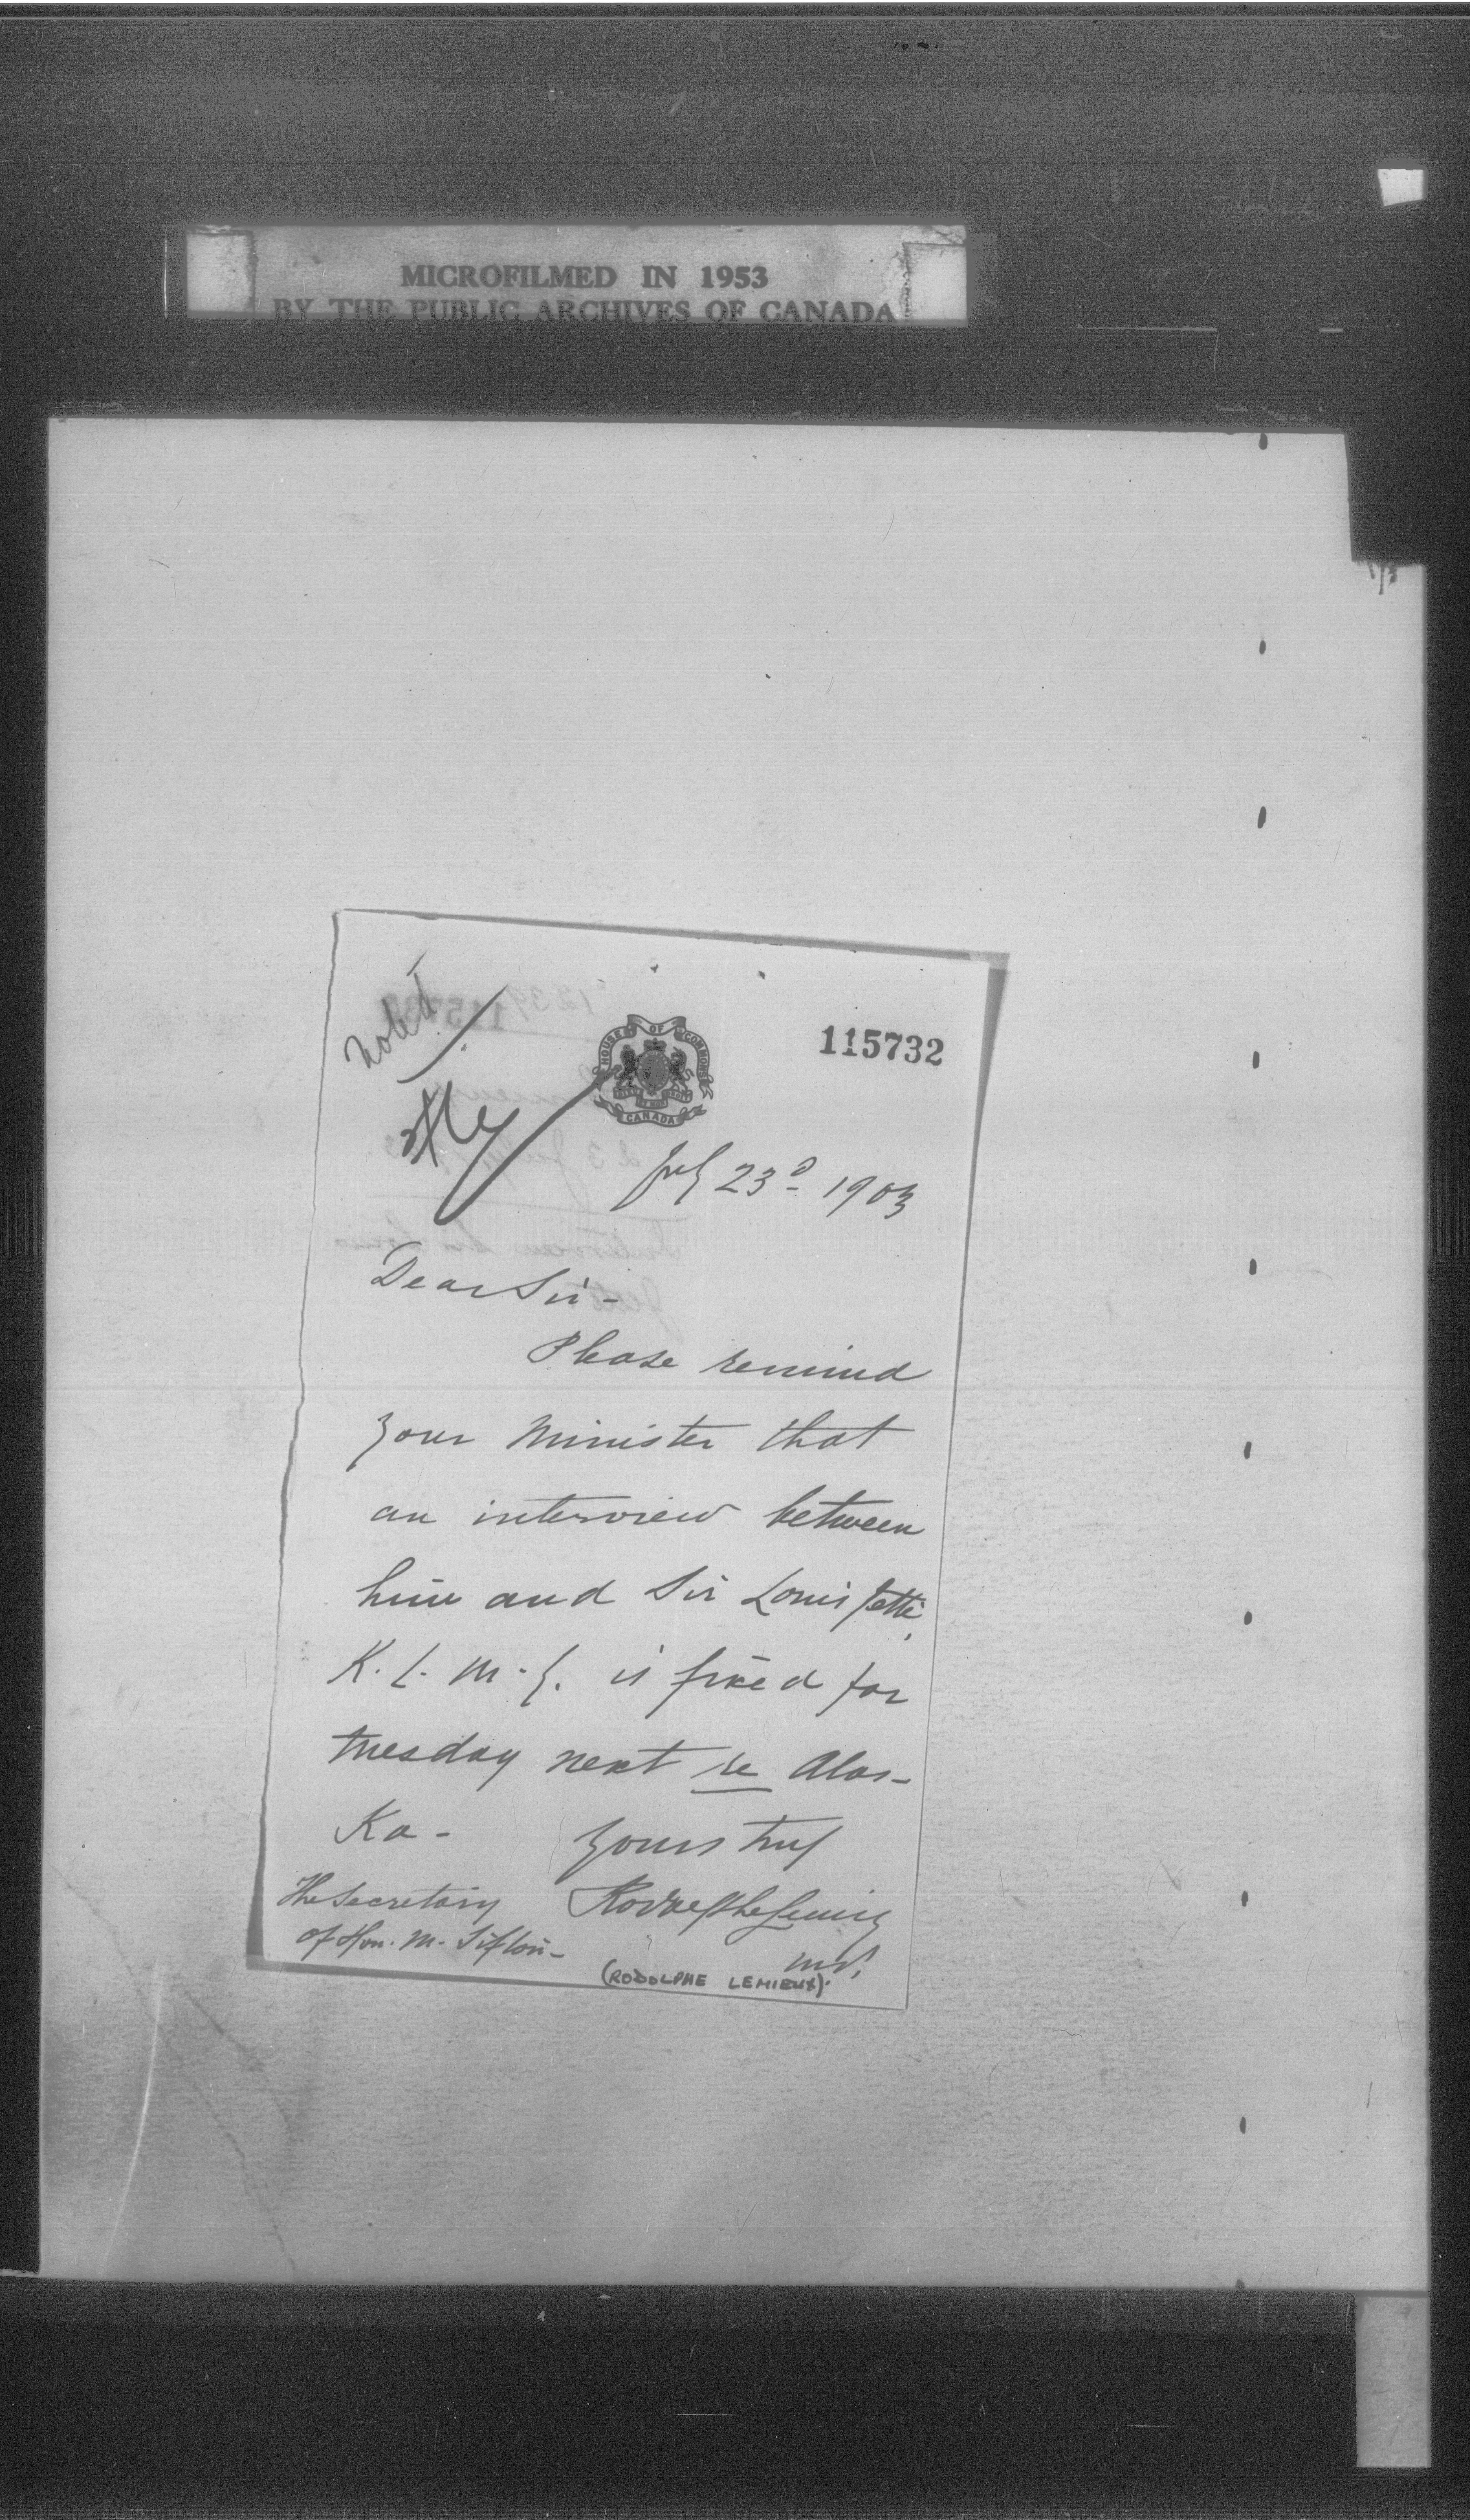 MICROFILMED IN 1953
BY THE PUBLIC ARCHIVES OF CANADA
Noted
HOUSE OF COMMONS
CANADA
115732
July 23d 1903
Dear Sir -
Please remind
your Minister that
an interview between
him and Sir Louis Jetté,
K. C. M. G. is fixed for
tuesday next re Alas-
Ka - Yours truly
The Secretary Rodolphe Lemieux
of Hon. M. Sifton - M.P.
(RODOLPHE LEMIEUX).